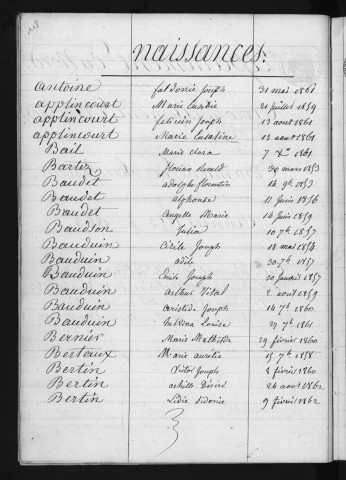 naissances.
Antoine Joseph 31 mai 1861
applincourt Marie 21 juillet 1859
applincourt félicien Joseph 13 aout 1861
applincourt Marie 12 aout 1861
Bail Marie Clara 7 1861
Bartez florian 30 mars 1853
Baudet adolphe florentin 14 9e 1853
Baudet alphonse 11 juin 1856
Baudet Angelle Marie 14 juin 1859
Baudson Julia 10 7e 1857
Bauduin Cécile Joseph 18 mai 1854
Bauduin adèle 30 7e 1857
Bauduin Emile Joseph 20 1857
Bauduin Arthur Vital 2 aout 1859
Bauduin aristide Joseph 14 7e 1860
Bauduin Louise 27 7e 1861
Bernier Marie Mathilde 29 février 1860
Berteaux Marie aurélie 15 7e 1858
Bertin Victor Joseph 8 février 1860
Bertin achille Désiré 24 aout 1862
Bertin Lidie Sidonie 9 février 1862